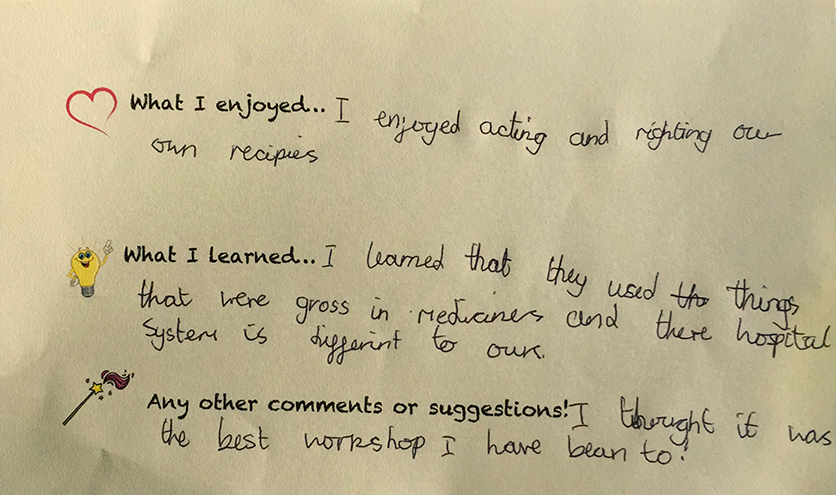 What I enjoyed... I enjoyed acting and righting our
own recipies
What I learned... I learned that they used the things
that were gross in medicines and there hospital
System is differint to ours.
Any other comments or suggestions! I thought it was
the best workshop I have bean to!